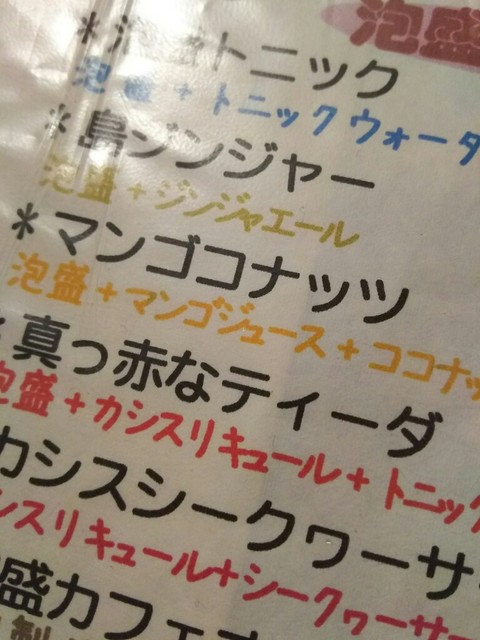 泡盛
*泡盛トニック
泡盛+トニックウォータ
*島ジンジャー
泡盛+ジンジャエール
*マンゴコナッツ
泡盛+マンゴジュース+ココナッ
*真っ赤なティーダ
泡盛+カシスリキュール+トニック
カシスシークヮーサ
シスリキュール+シークヮーサー
盛カフェオ
製